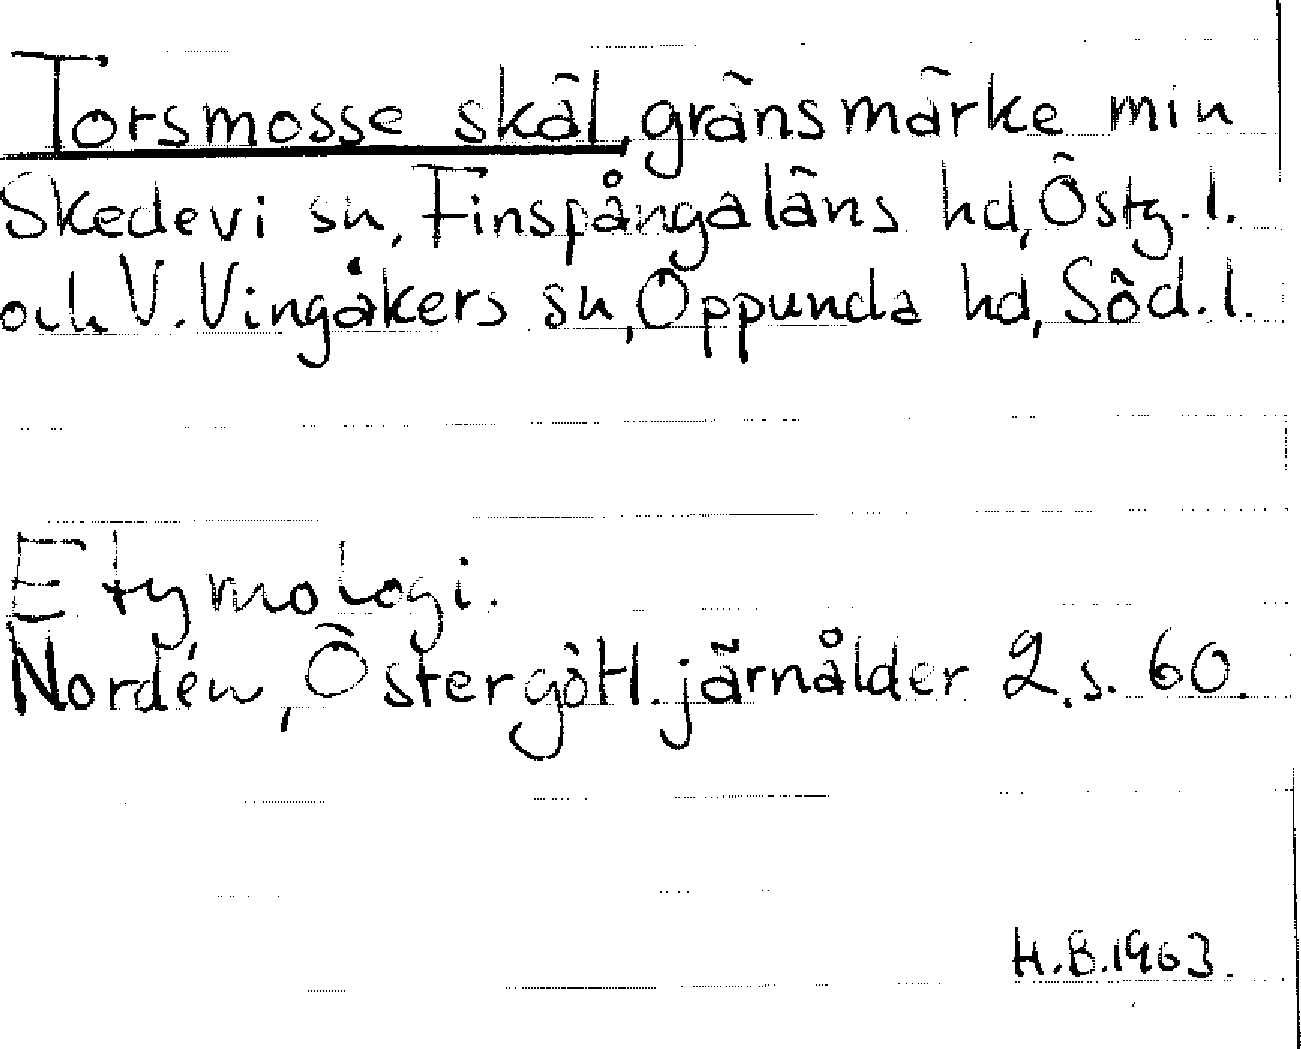 Torsmosse skäl, gränsmärke m in
Skedevi sn, Finspångaläns hd, Östg.l.
och V. Vingåkers sn, Oppunda hd, Söd.l.
Etymologi.
Nordén, Östergötl. järnålder 2. s. 60.
H.B. 1963.